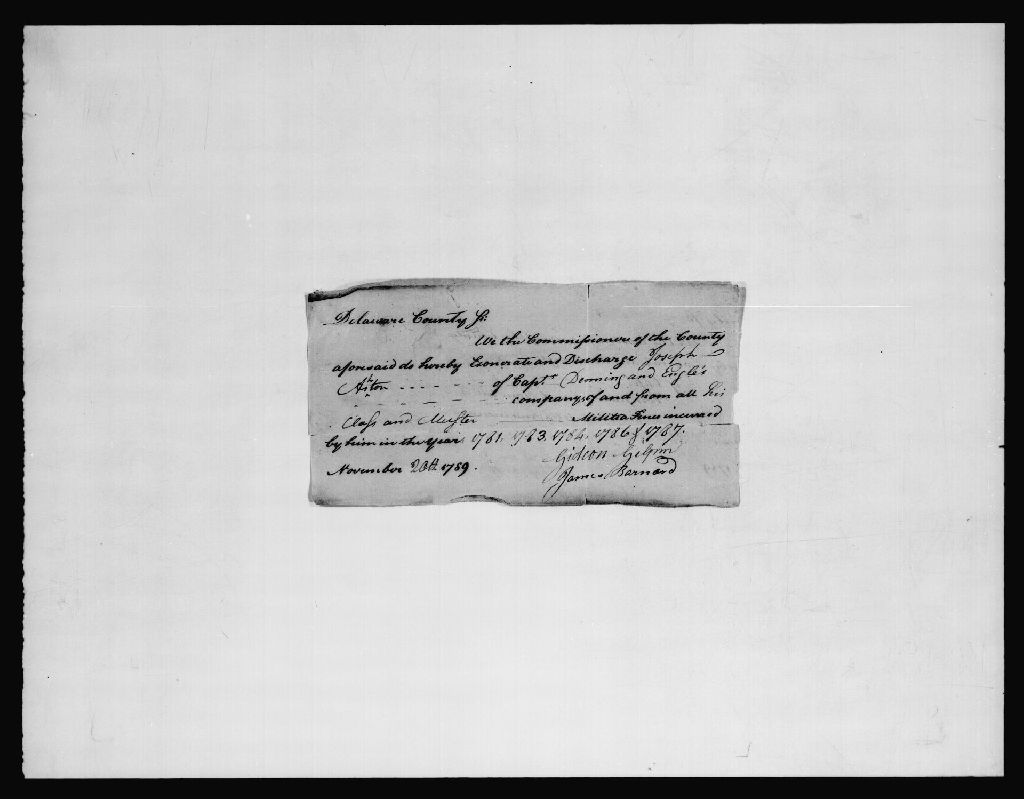 Delaware County Ss:
We the Commissioners of the County
aforesaid do hereby Exonerate and Discharge Joseph
Ashton of Capt.s Denning and Engle's
companys of and from all his
Class and Muster Militia Fines incurred
by him in the Years 1781. 1783. 1784. 1786 & 1787.
November 20th 1789.
Gideon Gilpin
James Barnard